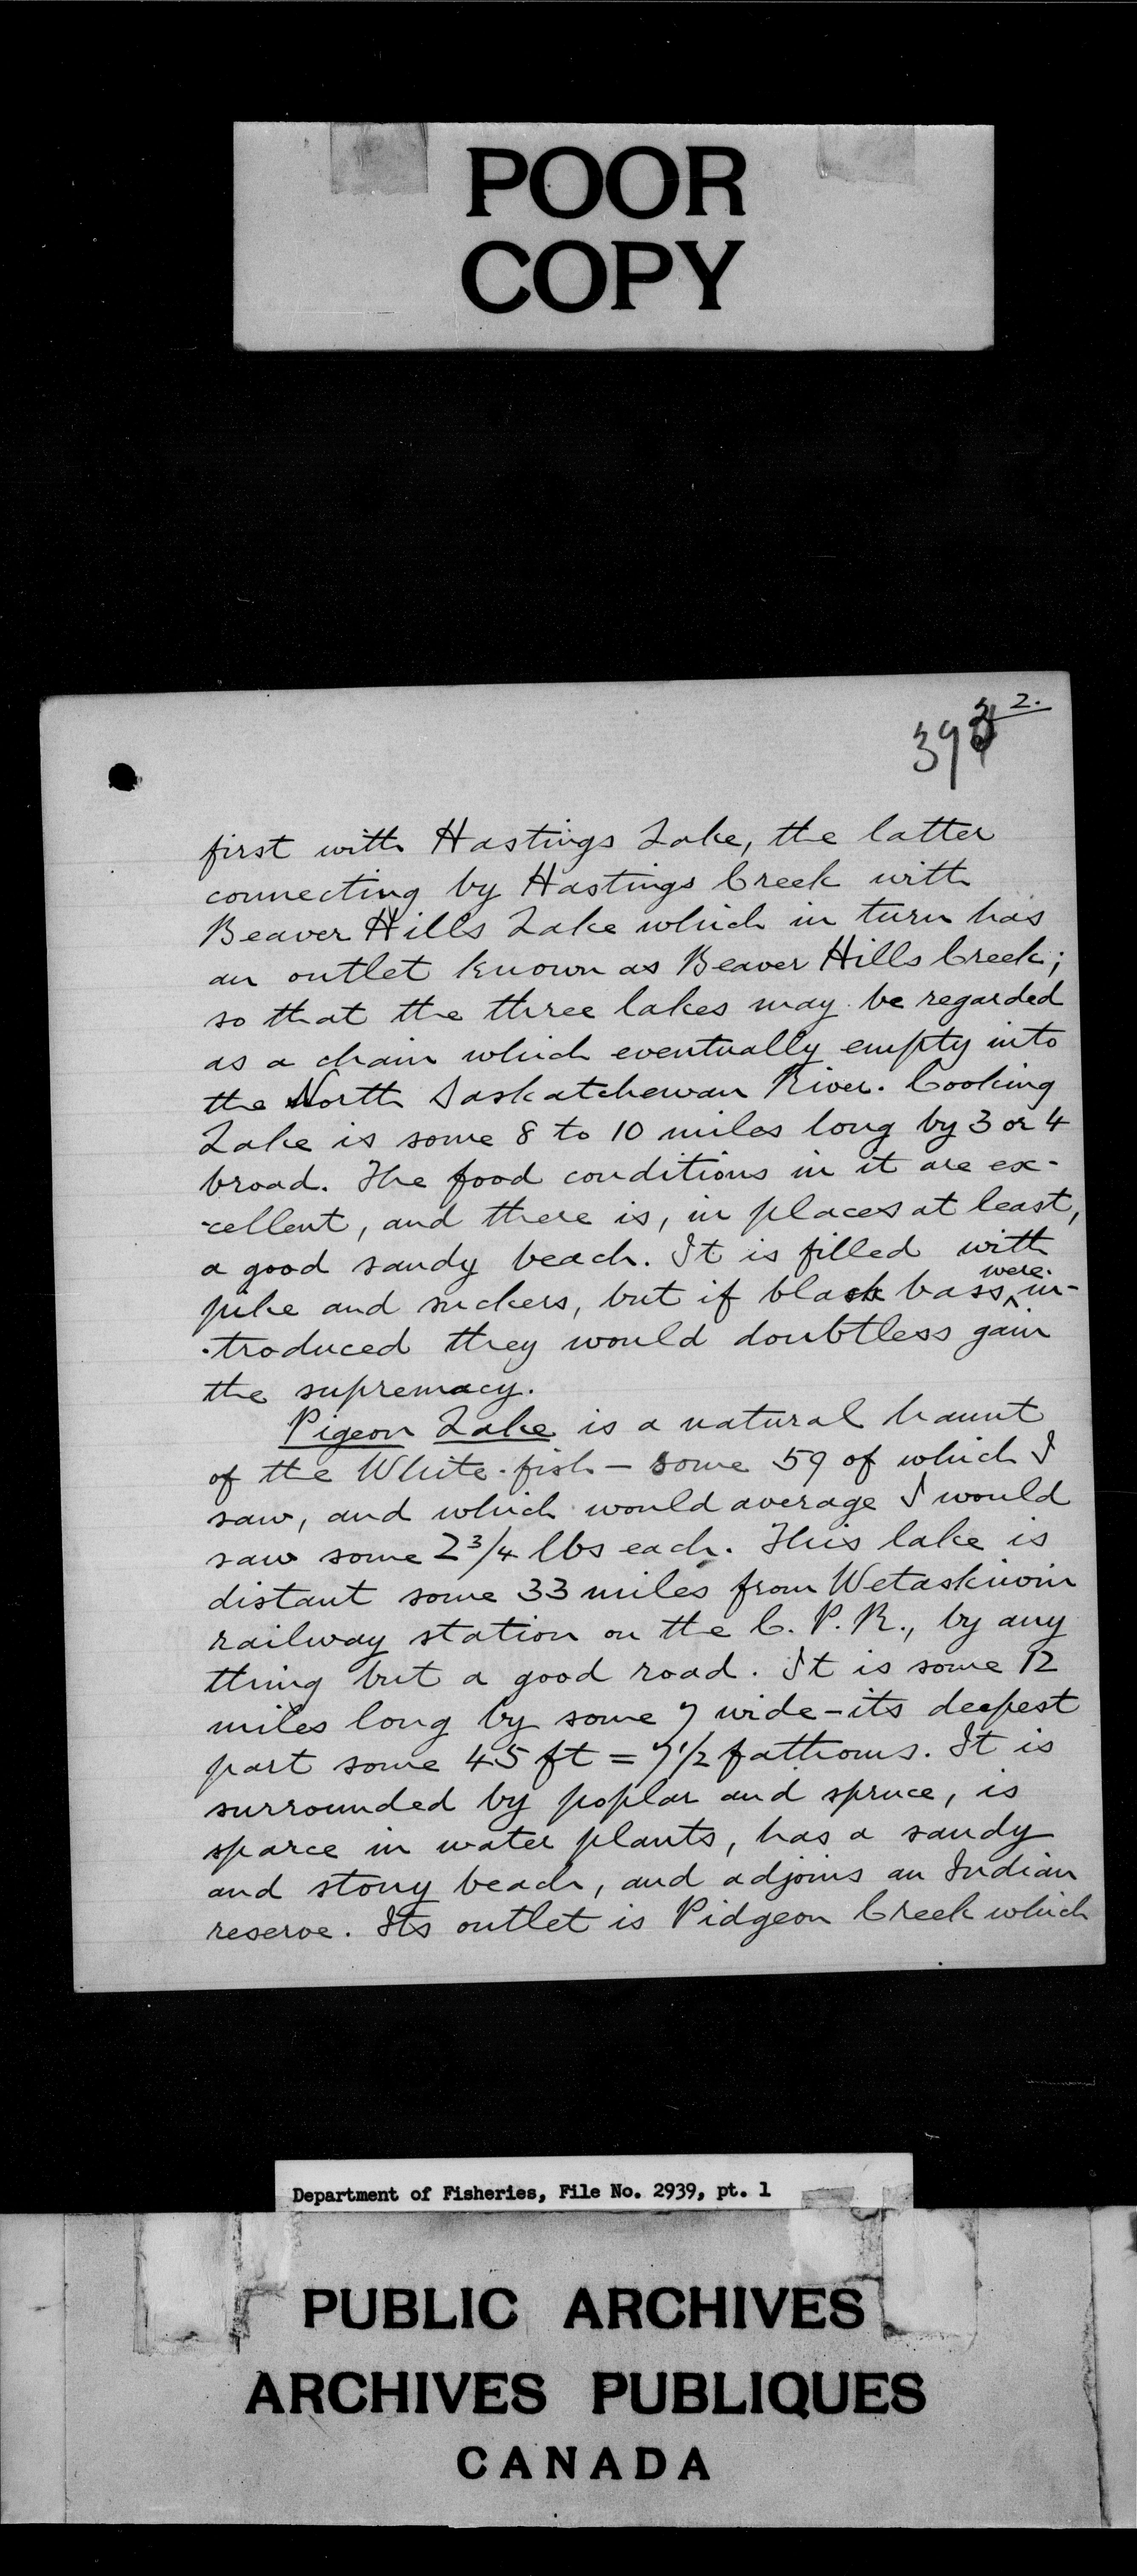 POOR
COPY
2.
first with Hastings Lake, the latter
connecting by Hastings Creek with
Beaver Hills Lake which in turn has
an outlet known as Beaver Hills Creek;
so that the three lakes may be regarded
as a chain which eventually empty into
the North Saskatchewan River. Cooking
Lake is some 8 to 10 miles long by 3 or 4
broad. The food conditions in it are ex-
-cellent, and there is, in places at least,
a good sandy beach. It is filled with
pike and suckers, but if black bass were in-
-troduced they would doubtless gain
the supremacy.
Pigeon Lake is a natural haunt
of the White-fish - some 59 of which I
saw, and which would average I would
saw some 2 3/4 lbs each. This lake is
distant some 33 miles from Wetaskiwin
railway station on the C. P. R., by any
thing but a good road. It is some 12
miles long by some 7 wide - its deepest
part some 45 ft = 7 1/2 fathoms. It is
surrounded by poplar and spruce, is
sparce in water plants, has a sandy
and stony beach, and adjoins an Indian
reserve. Its outlet is Pidgeon Creek which
Department of Fisheries, File No. 2939, pt. 1
PUBLIC ARCHIVES
ARCHIVES PUBLIQUES
CANADA